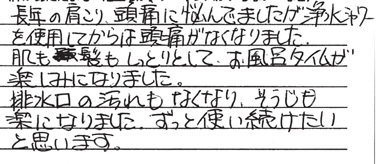 長年の肩こり、頭痛に悩んでましたが浄水シャワー
を使用してからは頭痛がなくなりました。
肌も髪もしっとりとして、お風呂タイムが
楽しみになりました。
排水口の汚れもなくなり、そうじも
楽になりました。ずっと使い続けたい
と思います。